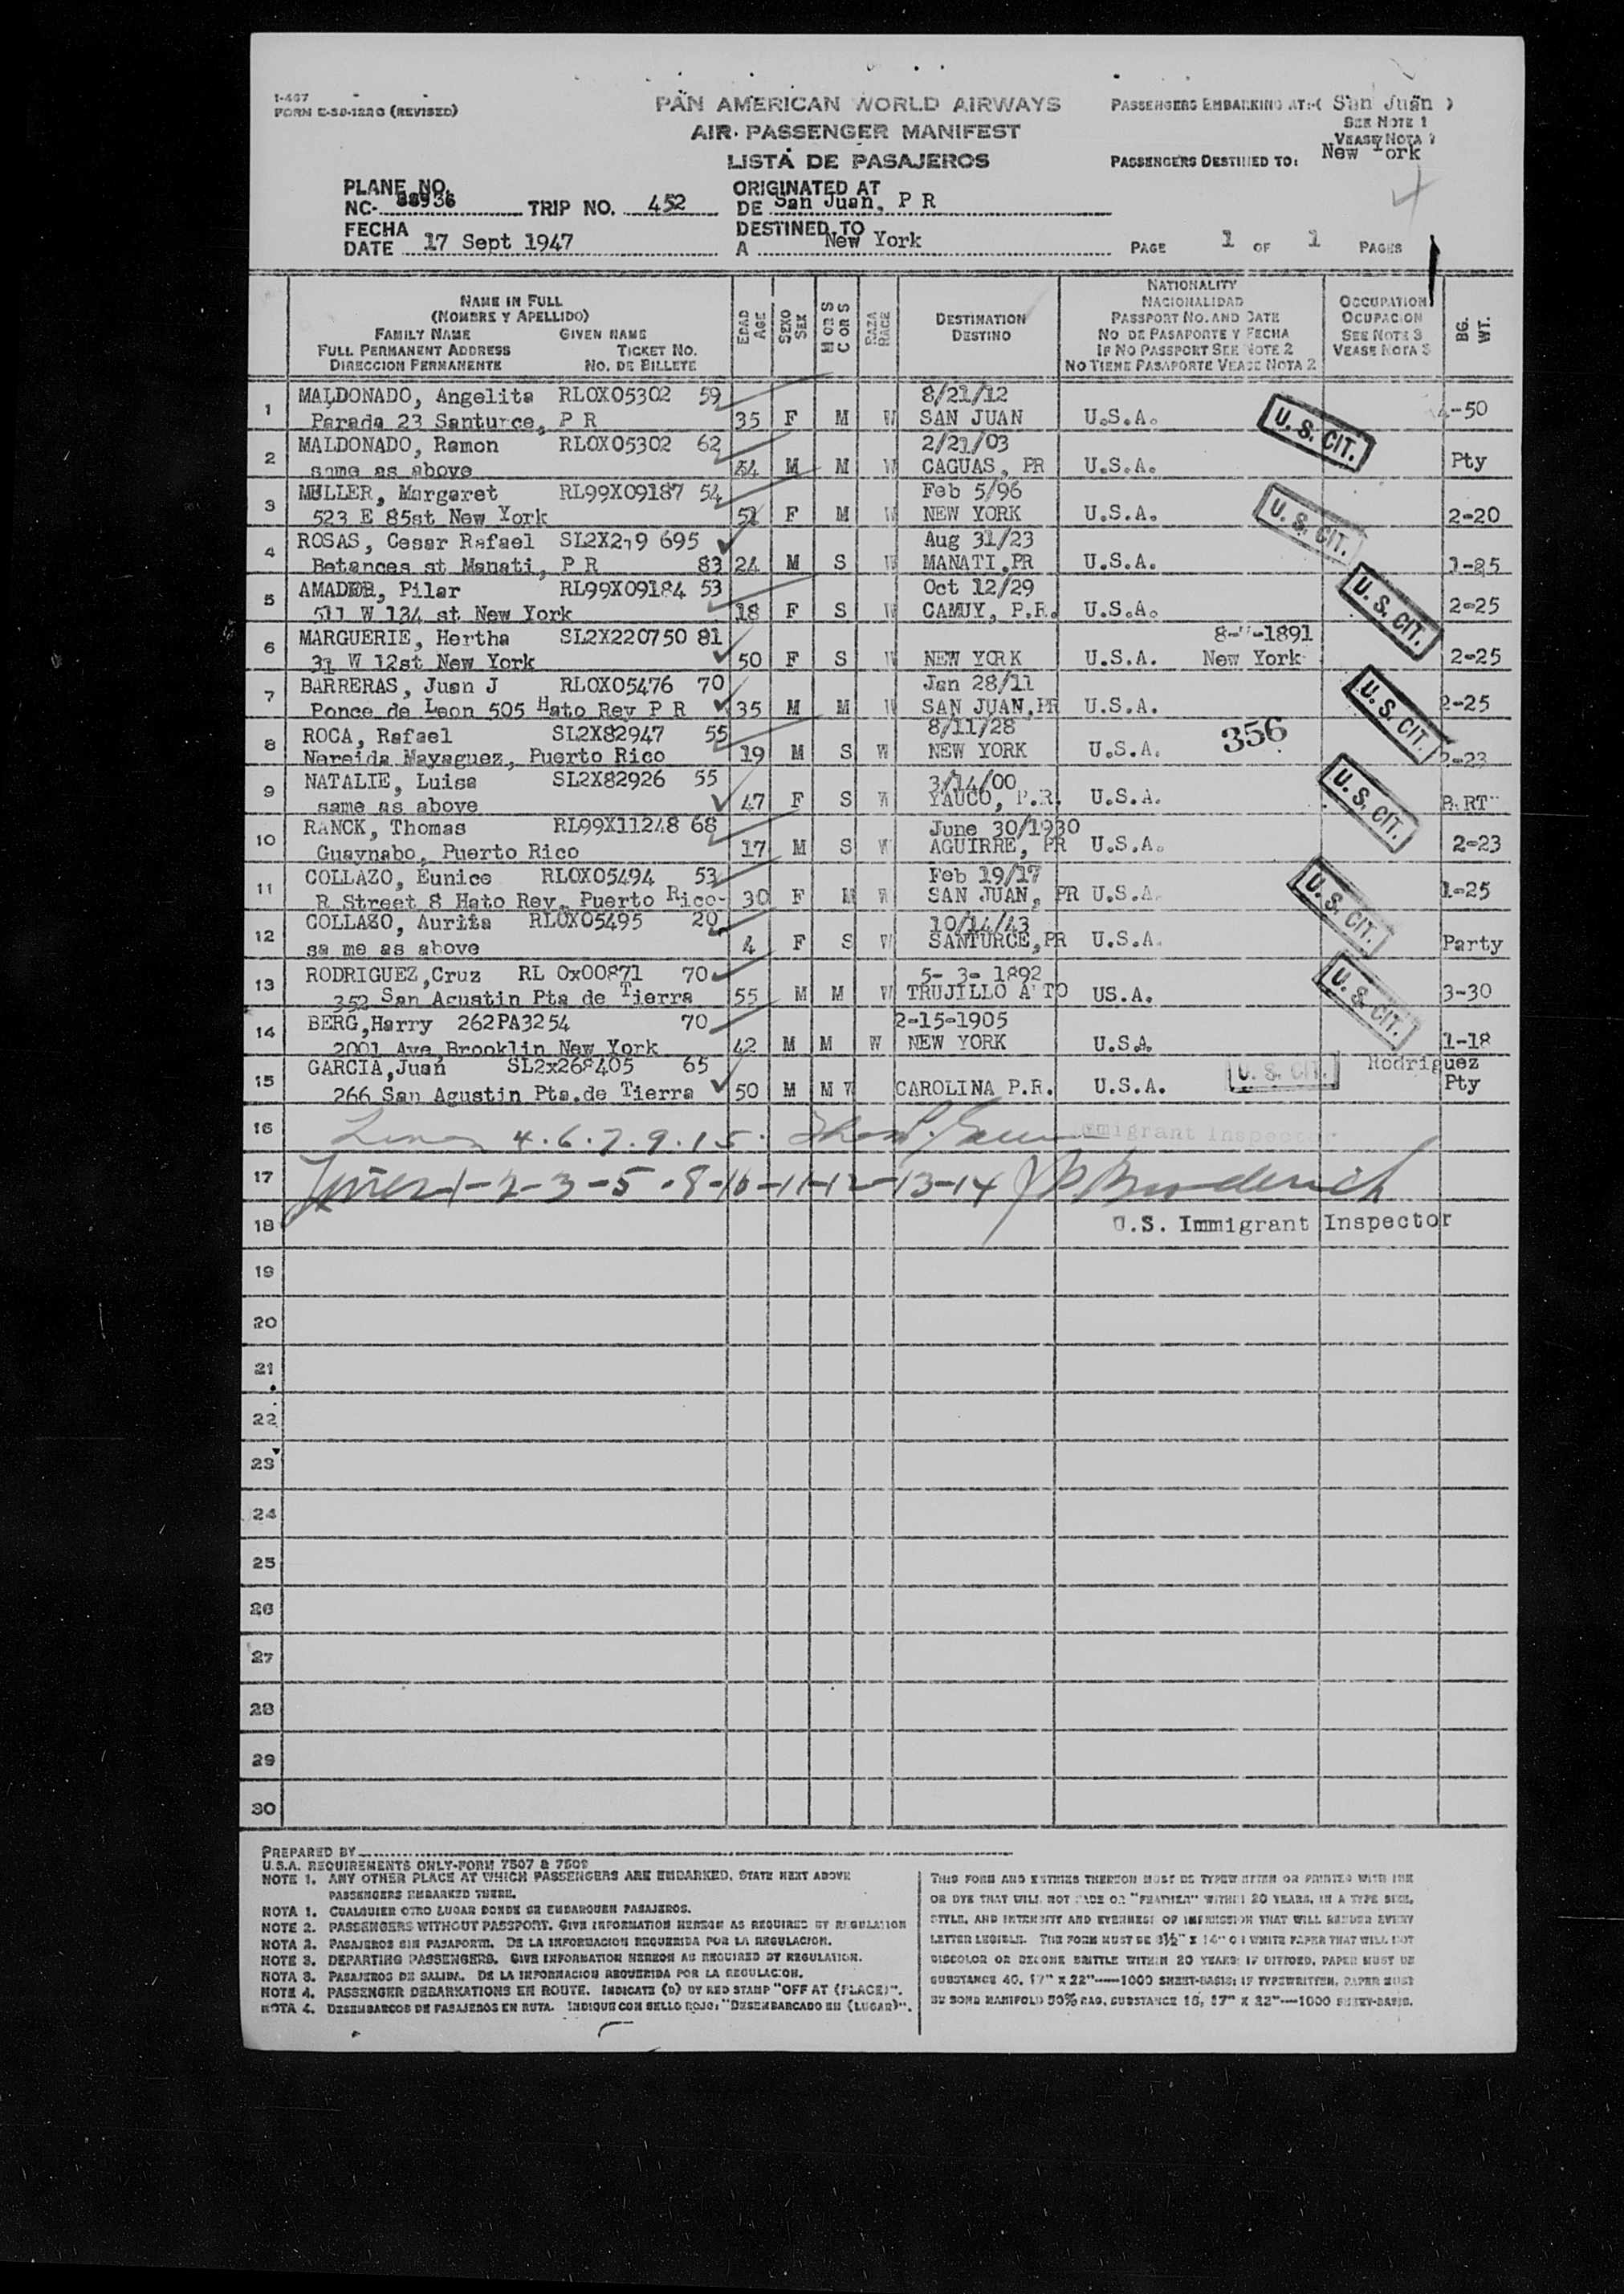 I-467
FORM E-SD-122G (REVISED)
PAN AMERICAN WORLD AIRWAYS
AIR PASSENGER MANIFEST
LISTA DE PASAJEROS
PASSENGERS EMBARKING AT: ( San Juan )
SEE NOTE 1
VEASE NOTA 1
PASSENGERS DESTINED TO: New York
PLANE NO.
NC- 88936 TRIP NO. 452
ORIGINATED AT
DE San Juan, P R
FECHA
DATE 17 Sept 1947
DESTINED TO
A New York
PAGE 1 OF 1 PAGES
NAME IN FULL
(NOMBRE Y APELLIDO)
FAMILY NAME GIVEN NAME
FULL PERMANENT ADDRESS TICKET NO.
DIRECCION PERMANENTE NO. DE BILLETE
EDAD
AGE
SEXO
SEX
M OR S
C OR S
RAZA
RACE
DESTINATION
DESTINO
NATIONALITY
NACIONALIDAD
PASSPORT NO. AND DATE
NO DE PASAPORTE Y FECHA
IF NO PASSPORT SEE NOTE 2
NO TIENE PASAPORTE VEASE NOTA 2
OCCUPATION
OCUPACION
SEE NOTE 3
VEASE NOTA 3
BG.
WT.
1 MALDONADO, Angelita RLOX05302 59 8/21/12
Parada 23 Santurce, P R 35 F M W SAN JUAN U.S.A. U. S. CIT. 4-50
2 MALDONADO, Ramon RLOX05302 62 2/21/03
same as above 44 M M W CAGUAS, PR U.S.A. Pty
3 MULLER, Margaret RL99X09187 54 Feb 5/96
523 E 85st New York 51 F M W NEW YORK U.S.A. U. S. CIT. 2-20
4 ROSAS, Cesar Rafael SL2X219 695 Aug 31/23
Betances st Manati, P R 83 24 M S W MANATI,PR U.S.A. 1-25
5 AMADOR, Pilar RL99X09184 53 Oct 12/29
511 W 134 st New York 18 F S W CAMUY, P.R. U.S.A. U. S. CIT. 2-25
6 MARGUERIE, Hertha SL2X220750 81 -1891
31 W 12st New York 50 F S W NEW YORK U.S.A. New York 2-25
7 BARRERAS, Juan J RLOX05476 70 Jan 28/11
Ponce de Leon 505 Hato Rey P R 35 M M W SAN JUAN,PR U.S.A. U. S. CIT. 2-25
8 ROCA, Rafael SL2X82947 55 8/11/28
Nereida Mayaguez, Puerto Rico 19 M S W NEW YORK U.S.A. 356 2-23
9 NATALIE, Luisa SL2X82926 55 3/14/00
same as above 47 F S W YAUCO, P.R. U.S.A. U. S. CIT. PARTY
10 RANCK, Thomas RL99X11248 68 June 30/1930
Guaynabo, Puerto Rico 17 M S W AGUIRRE, PR U.S.A. 2-23
11 COLLAZO, Eunice RLOX05494 53 Feb 19/17
R Street 8 Hato Rey, Puerto Rico- 30 F M W SAN JUAN, PR U.S.A. U. S. CIT. 1-25
12 COLLAZO, Aurita RLOX05495 20 10/14/43
sa me as above 4 F S W SANTURCE,PR U.S.A. Party
13 RODRIGUEZ,Cruz RL 0x00871 70 5- 3- 1892
352 San Agustin Pta de Tierra 55 M M W TRUJILLO A TO US.A. U. S. CIT. 3-30
14 BERG,Harry 262PA3254 70 2-15-1905
2001 Ave Brooklin New York 42 M M W NEW YORK U.S.A. 1-18
15 GARCIA,Juan SL2x268405 65 Rodriguez
266 San Agustin Pta.de Tierra 50 M M W CAROLINA P.R. U.S.A. U. S. CIT. Pty
16 Lines 4.6.7.9.15. Immigrant Inspector
17 Lines 1-2-3-5-8-10-11-12-13-14 J Broderick
18 U.S. Immigrant Inspector
19
20
21
22
23
24
25
26
27
28
29
30
PREPARED BY
U.S.A. REQUIREMENTS ONLY-FORM 7507 & 7509
NOTE 1. ANY OTHER PLACE AT WHICH PASSENGERS ARE EMBARKED, STATE NEXT ABOVE
PASSENGERS EMBARKED THERE.
NOTA 1. CUALQUIER OTRO LUGAR DONDE SE EMBARQUEN PASAJEROS.
NOTE 2. PASSENGERS WITHOUT PASSPORT. GIVE INFORMATION HEREON AS REQUIRED BY REGULATION
NOTA 2. PASAJEROS SIN PASAPORTE. DE LA INFORMACION REQUERIDA POR LA REGULACION.
NOTE 3. DEPARTING PASSENGERS. GIVE INFORMATION HEREON AS REQUIRED BY REGULATION.
NOTA 3. PASAJEROS DE SALIDA. DE LA INFORMACION REQUERIDA POR LA REGULACION.
NOTE 4. PASSENGER DEBARKATIONS EN ROUTE. INDICATE (D) BY RED STAMP "OFF AT (PLACE)".
NOTA 4. DESEMBARCOS DE PASAJEROS EN RUTA. INDIQUE CON SELLO ROJO: "DESEMBARCADO EN (LUGAR)".
THIS FORM AND ENTRIES THEREON MUST BE TYPEWRITTEN OR PRINTED WITH INK
OR DYE THAT WILL NOT FADE OR "FEATHER" WITHIN 20 YEARS, IN A TYPE SIZE,
STYLE, AND INTENSITY AND EVENNESS OF IMPRESSION THAT WILL RENDER EVERY
LETTER LEGIBLE. THE FORM MUST BE 8½" X 14" ON WHITE PAPER THAT WILL NOT
DISCOLOR OR BECOME BRITTLE WITHIN 20 YEARS; IF DITTOED, PAPER MUST BE
SUBSTANCE 40, 17" X 22"----1000 SHEET-BASIS; IF TYPEWRITTEN, PAPER MUST
BE BOND MANIFOLD 50% RAG, SUBSTANCE 16, 17" X 22"----1000 SHEET-BASIS.